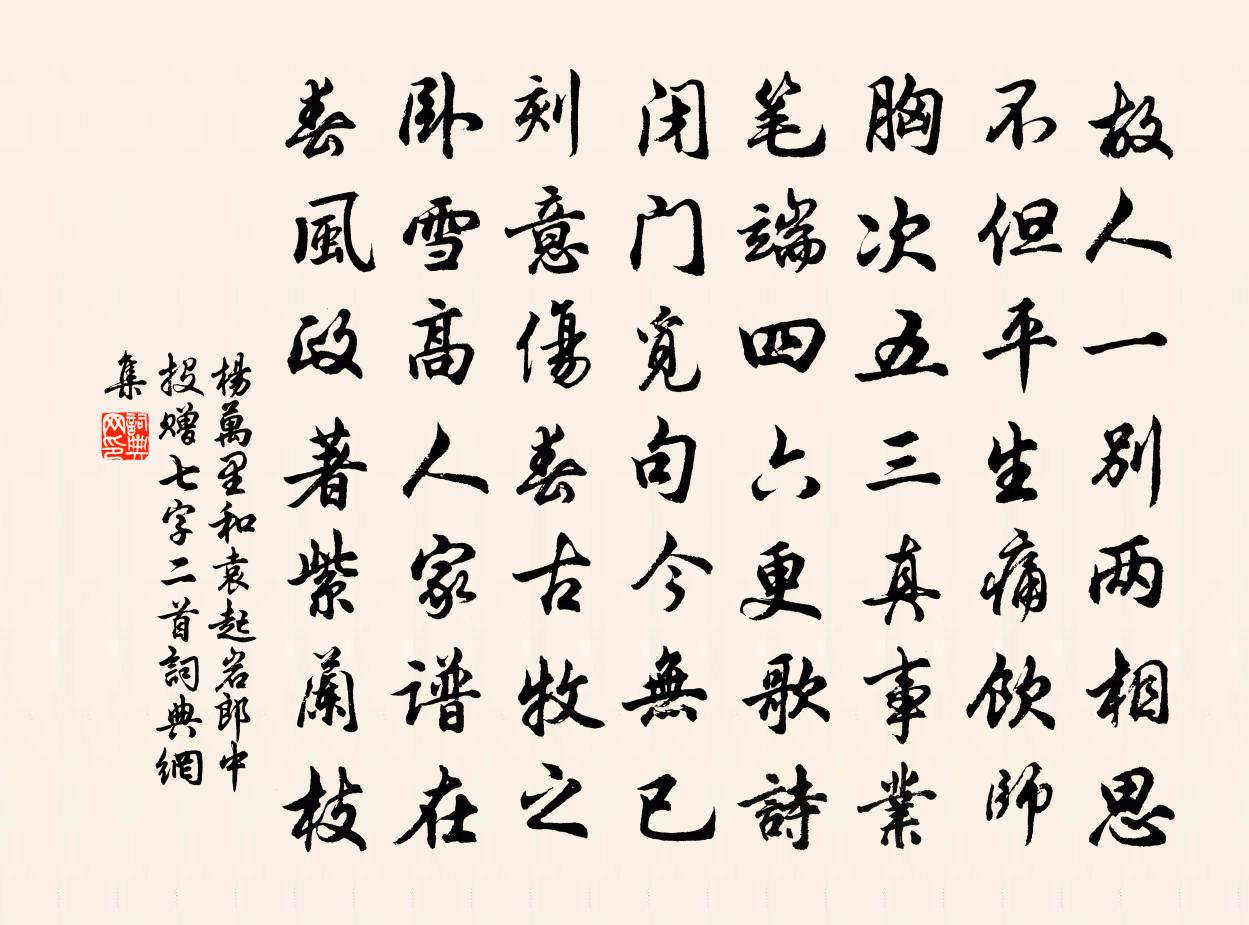 故人一别两相思
不但平生痛饮師
胸次五三真事業
笔端四六更歌詩
闭门覓句今無已
刻意傷春古牧之
卧雪高人家谱在
春風政著紫蘭枝
楊萬里和袁起岩郎中
投赠七字二首詞典網
集
詞典
网印